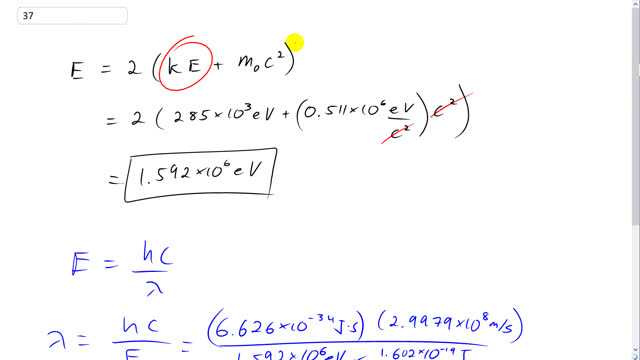 37
E = 2 (KE + m₀c²)
= 2 (285×10³eV + (0.511×10⁶ eV/c²) c²)
= 1.592×10⁶eV
E = hc/λ
λ = hc/E = (6.626×10⁻³⁴J·s) (2.9979×10⁸m/s) / 1.592×10⁶eV 1.602×10⁻¹⁹J